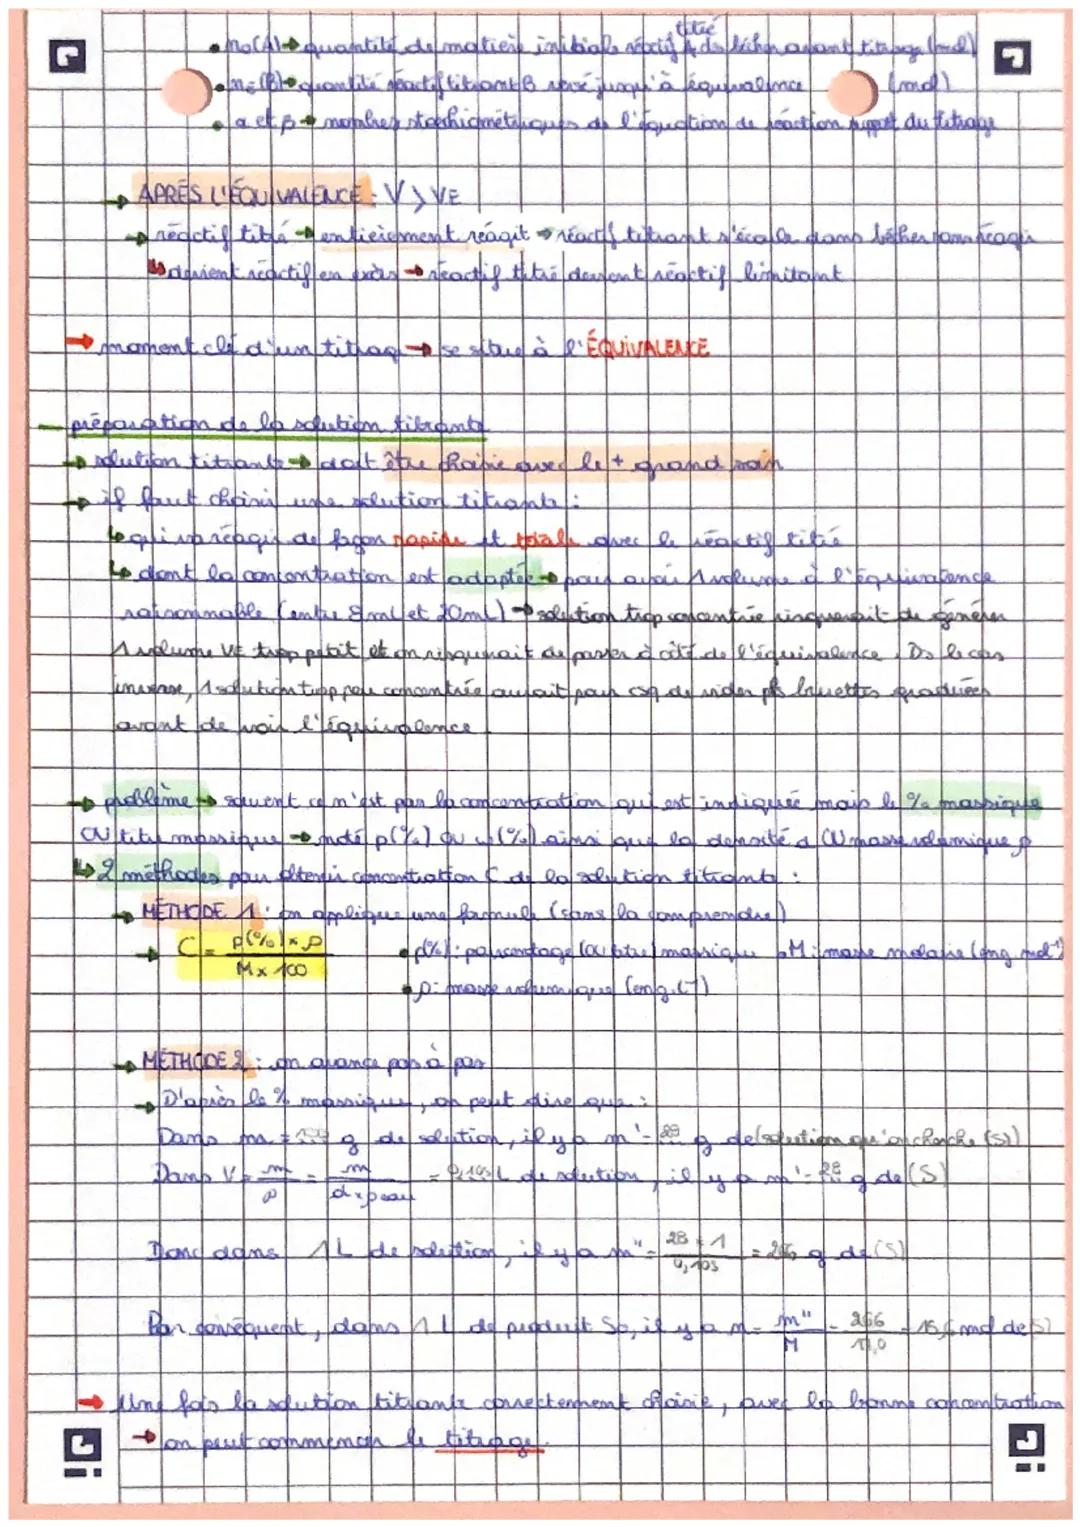 titré
• n₀(A) → quantité de matière initiale réactif A ds bécher avant titrage (mol)
• nE(B) → quantité réactif titrant B versé jusqu'à équivalence (mol)
• a et β → nombres stœchiométriques de l'équation de réaction support du titrage
→ APRÈS L'ÉQUIVALENCE : V > VE
→ réactif titré → entièrement réagit → réactif titrant s'écoule dans bécher sans réagir
↳ devient réactif en excès → réactif titré devient réactif limitant
→ moment clé d'un titrage → se situe à l'ÉQUIVALENCE
– préparation de la solution titrante
→ solution titrante → doit être choisie avec le + grand soin
→ il faut choisir une solution titrante :
↳ qui va réagir de façon rapide et totale avec le réactif titré
↳ dont la concentration est adaptée → pour avoir 1 volume à l'équivalence
raisonnable (entre 8 mL et 20mL) → solution trop concentrée risquerait de générer
1 volume VE trop petit et on risquerait de passer à côté de l'équivalence. Ds le cas
inverse, 1 solution trop peu concentrée aurait pour csq de vider pls burettes graduées
avant de voir l'équivalence.
→ problème → souvent ce n'est pas la concentration qui est indiquée mais le % massique
OU titre massique → noté p(%) ou w(%) ainsi que la densité d OU masse volumique ρ
↳ 2 méthodes pour obtenir concentration C de la solution titrante :
→ MÉTHODE 1 : on applique une formule (sans la comprendre)
→ C = p(%) × ρ / M × 100 • p(%) : pourcentage (ou titre) massique • M : masse molaire (en g.mol⁻¹)
• ρ : masse volumique (en g.L⁻¹)
→ MÉTHODE 2 : on avance pas à pas
→ D'après le % massique, on peut dire que :
Dans m = 100 g de solution, il y a m' = 28 g de (solution qu'on cherche (S))
Dans V = m/ρ = m/d×ρeau = 0,105 L de solution, il y a m' = 28 g de (S)
Donc dans 1 L de solution, il y a m" = 28 × 1 / 0,105 = 266 g de (S)
Par conséquent, dans 1 L de produit S₀, il y a n = m"/M = 266/17,0 = 15,6 mol de (S)
→ Une fois la solution titrante correctement choisie, avec la bonne concentration
→ on peut commencer le titrage.